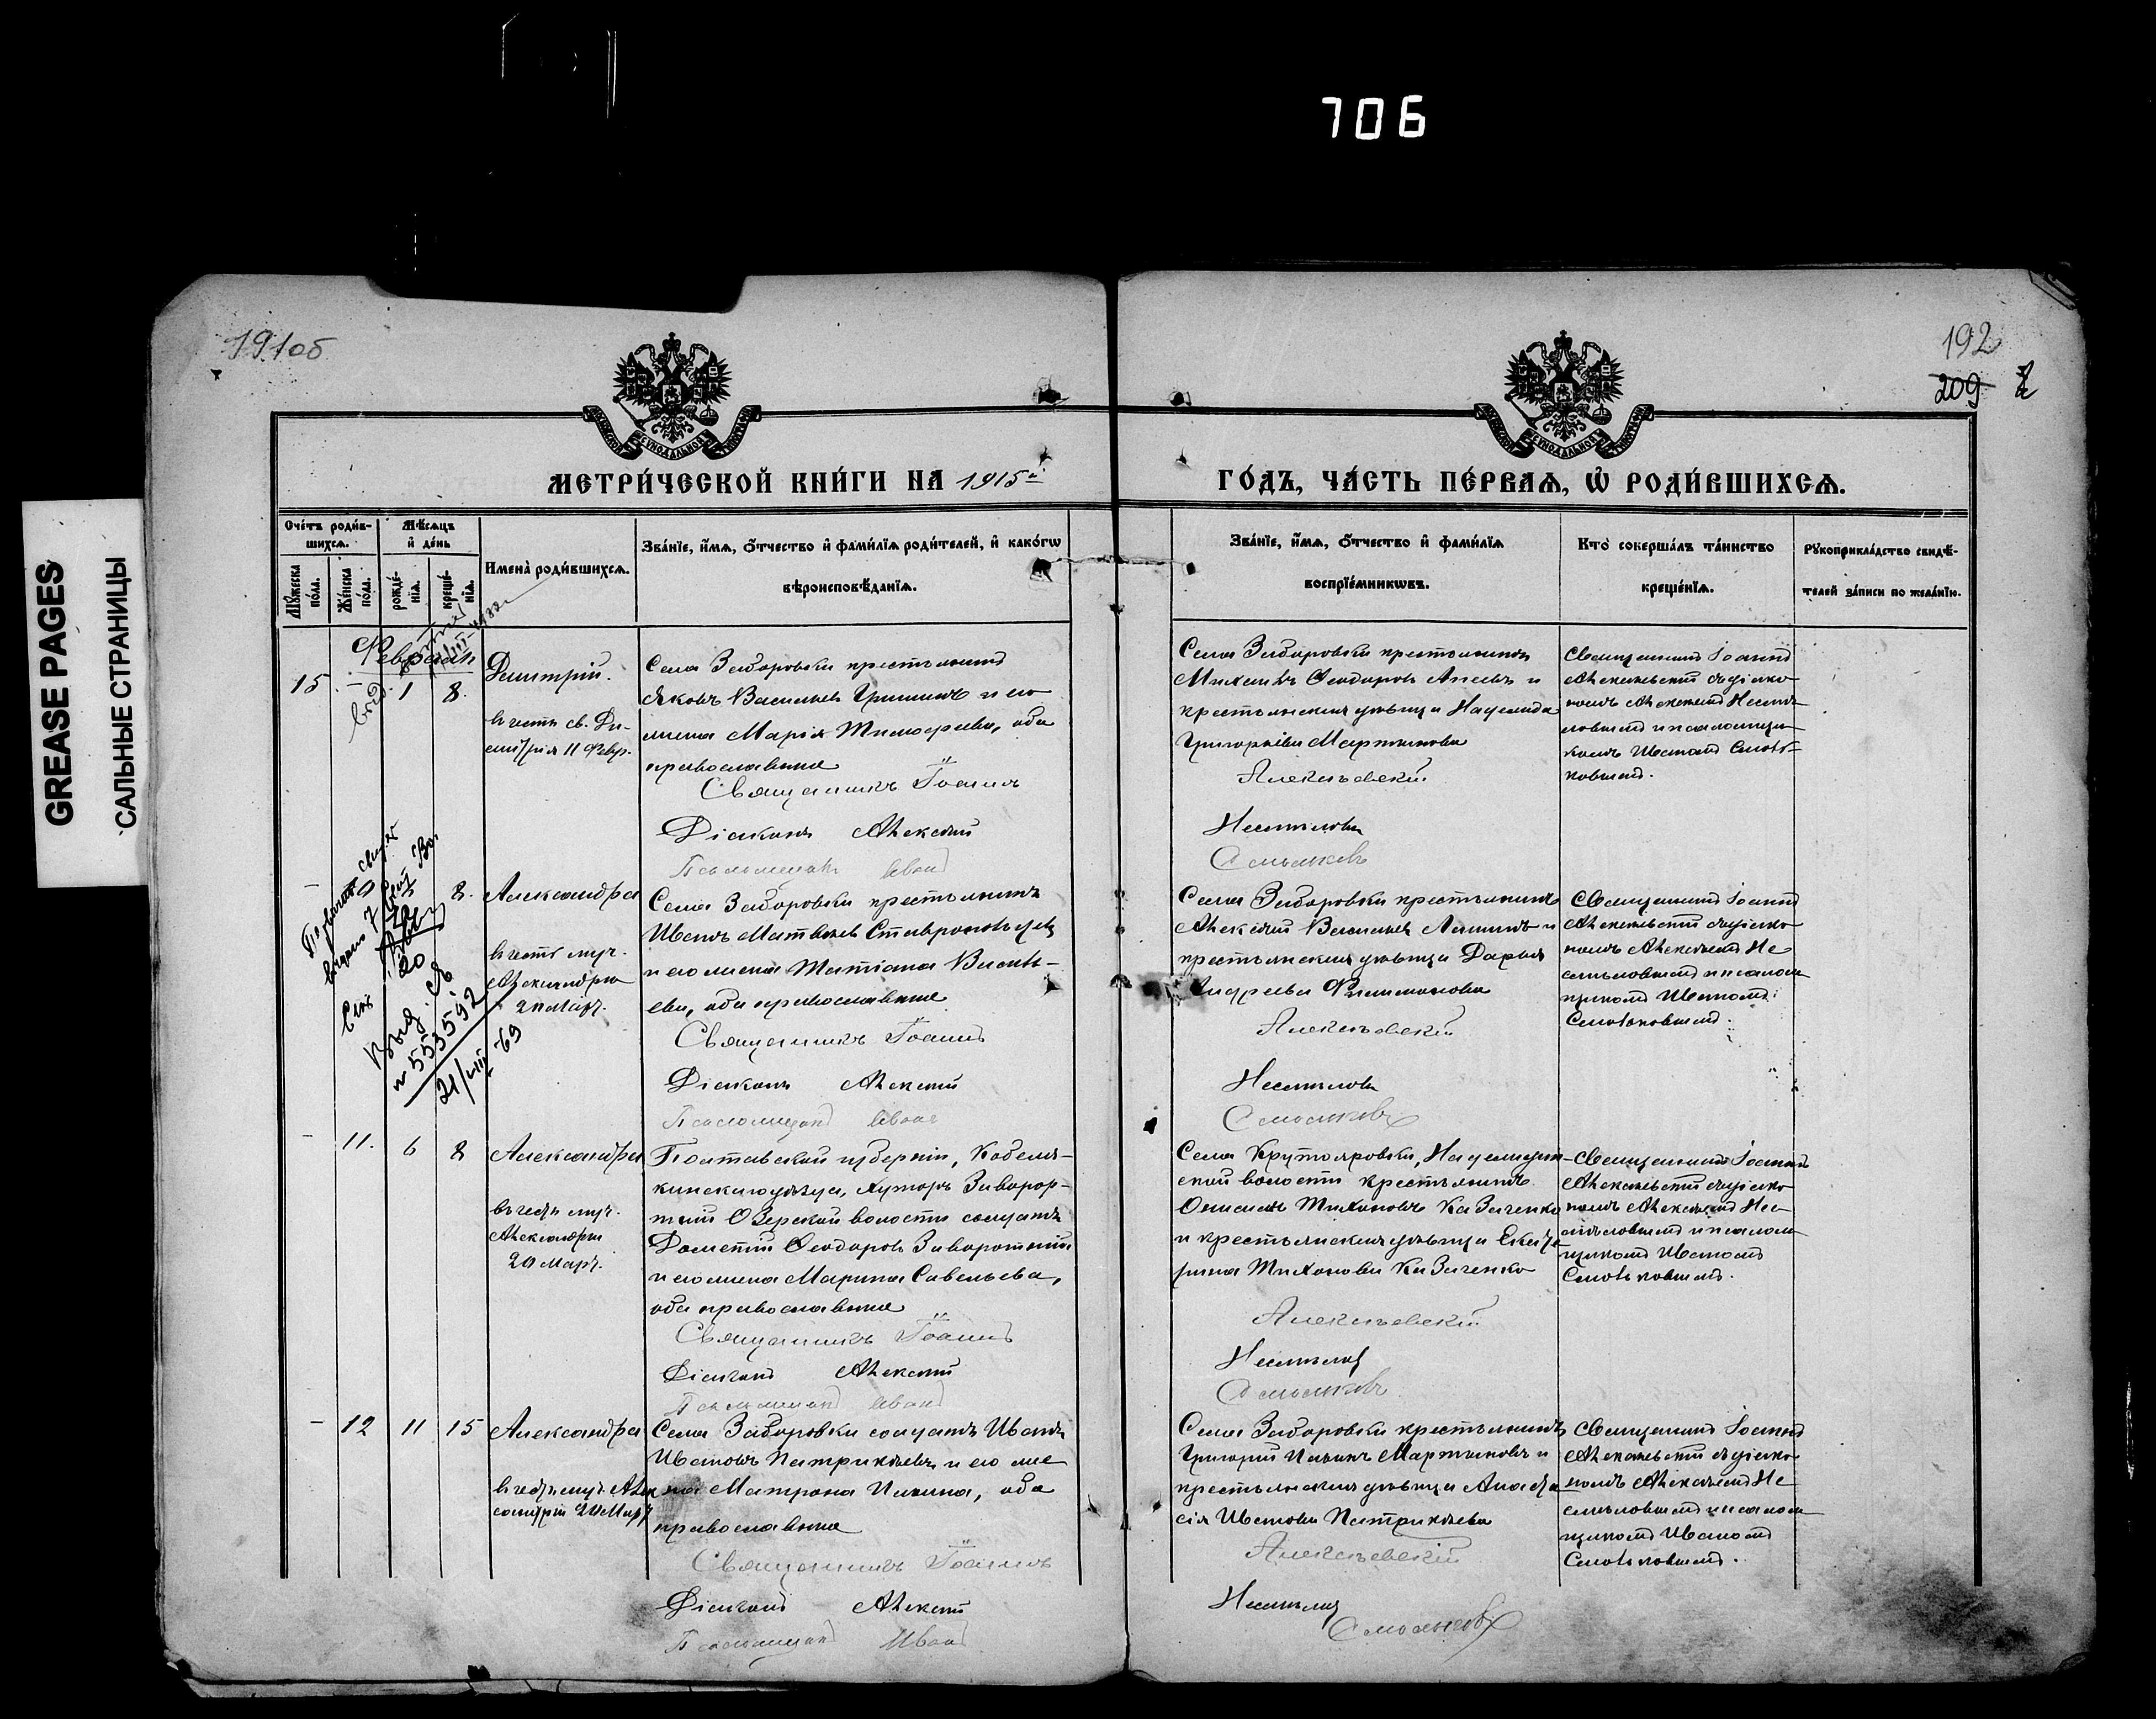 706
GREASE PAGES
САЛЬНЫЕ СТРАНИЦЫ
191об
192
209
МЕТРИ́ЧЕСКОЙ КНИ́ГИ НА 1915й
ГО́ДЪ, ЧА́СТЬ ПЕ́РВАѦ, Ѡ҆ РОДИ́ВШИХСѦ.
Сче́тъ роди́в-
шихсѧ.
Мѣ́сѧцъ
и҆ де́нь
Мꙋ́жеска
по́ла.
Же́нска
по́ла.
рожде́-
нїѧ.
креще́-
нїѧ.
Имена̀ роди́вшихсѧ.
Зва́нїе, и҆́мѧ, ѻ҆́тчество и҆ фами́лїѧ роди́телей, и҆ како́гѡ
вѣроисповѣ́данїѧ.
Зва́нїе, и҆́мѧ, ѻ҆́тчество и҆ фами́лїѧ
воспрїе́мникѡвъ.
Кто̀ соверша́лъ та́инство
креще́нїѧ.
Рꙋкоприкла́дство свидѣ́-
телей за́писи по жела́нїю.
Февраль
15. - 1 8.
Димитрій.
въ честь св. Ди-
митрія 11 Февр.
Села Заборовки крестьянинъ
Яковъ Васильевъ Гришинъ и его
жена Марія Тимофеева, оба
православные
Священникъ Іоаннъ
Діаконъ Алексій
Псаломщикъ Иванъ
Села Заборовки крестьянинъ
Михаилъ Ѳеодоровъ и
крестьянская дѣвица Надежда
Григорьева Мартынова
Алексѣевскій
Несмѣлов
Смоляковъ
Священникъ Іоаннъ
Алексѣевскій съ діако-
номъ Алексѣемъ Несмѣ-
ловымъ и псаломщи-
комъ Иваномъ Смоля-
ковымъ.
- 8.
Александра
въ честь муч.
Александры
20 Март.
выд.
№ 553592
21/VIII 69
Села Заборовки крестьянинъ
Иванъ Матвѣевъ
и его жена Татіана Василь-
ева, оба православные
Священникъ Іоаннъ
Діаконъ Алексій
Псаломщикъ Иванъ
Села Заборовки крестьянинъ
Алексій Васильевъ и
крестьянская дѣвица Дарья
Андреева Филимонова
Алексѣевскій
Несмѣлов
Смоляковъ
Священникъ Іоаннъ
Алексѣевскій съ діако-
номъ Алексѣемъ Не-
смѣловымъ и псалом-
щикомъ Иваномъ
Смоляковымъ.
- 11. 6 8
Александра
въ честь муч.
Александры
20 Март.
Полтавской губерніи, Кобеля-
кскаго уѣзда, хуторъ Заворот-
ній Озерской волости солдатъ
Дометій Ѳеодоровъ Заворотній
и его жена Марина Савельева,
оба православные
Священникъ Іоаннъ
Діаконъ Алексій
Псаломщикъ Иванъ
Села Крутояровки, Надеждин-
ской волости крестьянинъ
Тихоновъ Казаченко
и крестьянская дѣвица Екате-
рина Тихонова Казаченко
Алексѣевскій
Несмѣлов
Смоляковъ
Священникъ Іоаннъ
Алексѣевскій съ діако-
номъ Алексѣемъ Нес-
мѣловымъ и псалом-
щикомъ Иваномъ
Смоляковымъ.
- 12 11 15
Александра
въ честь муч. Алек
сандры 20 Март
Села Заборовки солдатъ Иванъ
Ивановъ Патрикѣевъ и его же
на Матрона Ильина, оба
православные
Священникъ Іоаннъ
Діаконъ Алексій
Псаломщикъ Иванъ
Села Заборовки крестьянинъ
Григорій Ильинъ Мартыновъ и
крестьянская дѣвица Анаста
сія Иванова Патрикѣева
Алексѣевскій
Несмѣлов
Смоляковъ
Священникъ Іоаннъ
Алексѣевскій съ діако-
номъ Алексѣемъ Не
смѣловымъ и псалом-
щикомъ Иваномъ
Смоляковымъ.